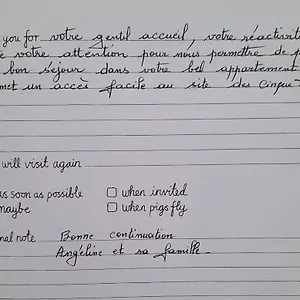 you for votre gentil accueil, votre réactivité
votre attention pour nous permettre de p
bon séjour dans votre bel appartement
met un accès facile au site des Cinque T
will visit again
as soon as possible □ when invited
maybe □ when pigs fly
nal note Bonne continuation
Angéline et sa famille.